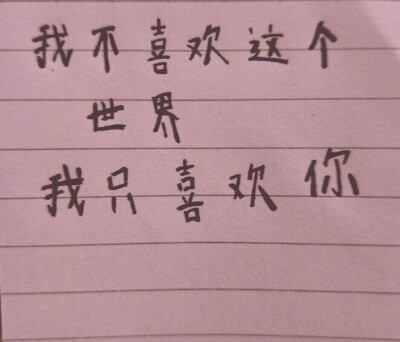 我不喜欢这个
世界
我只喜欢你